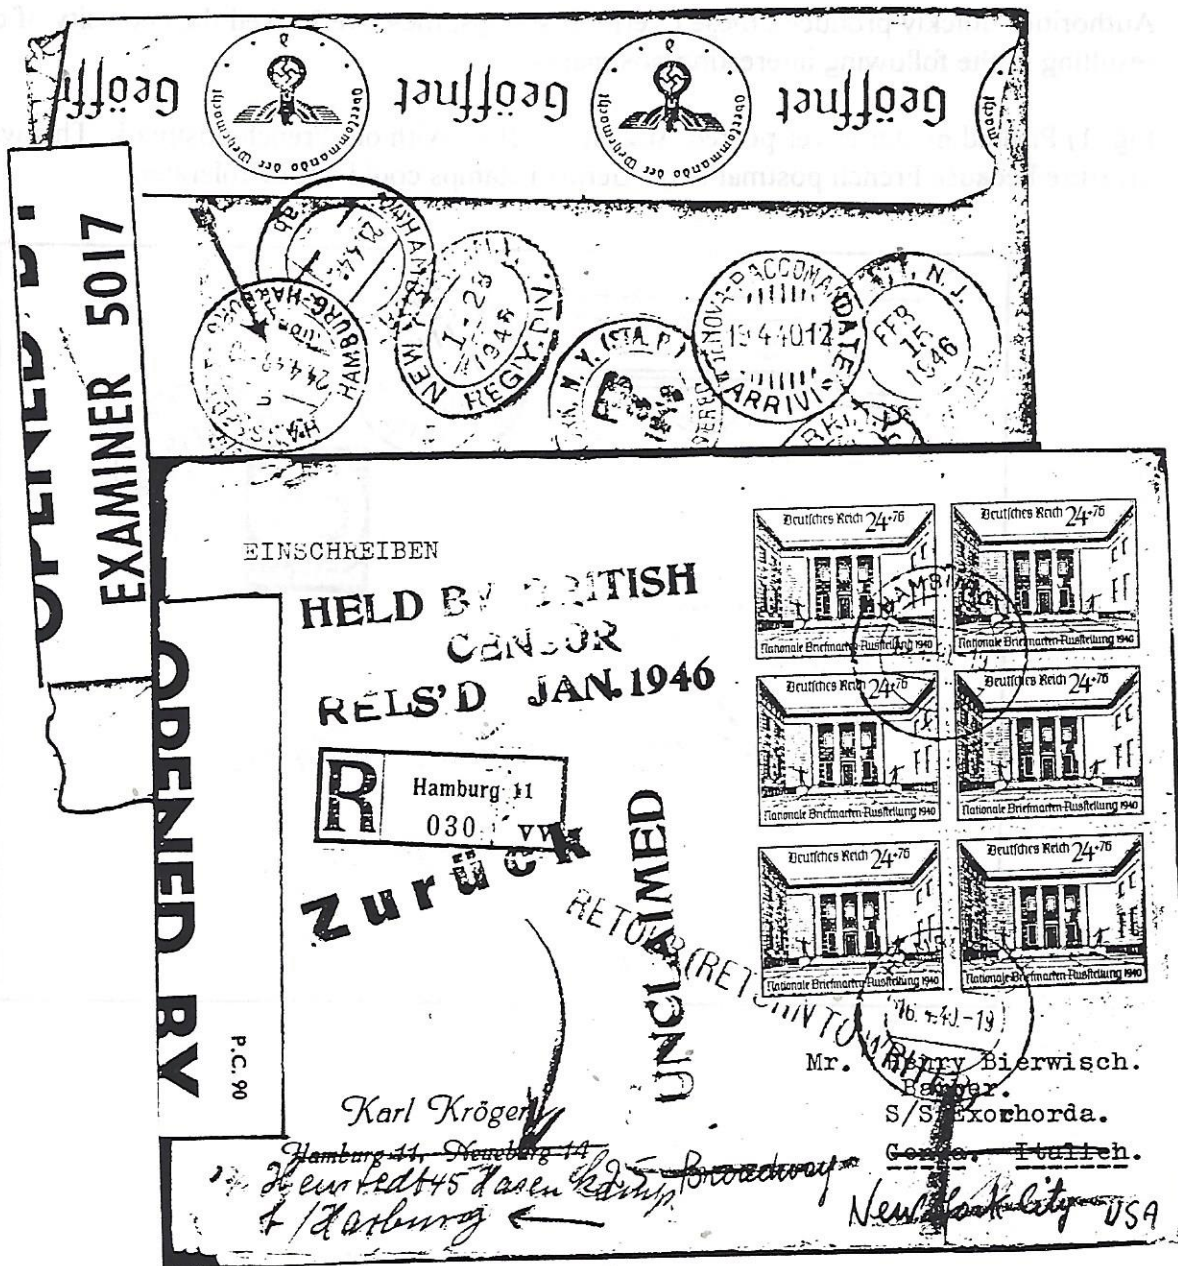 Geöffnet
Oberkommando der Wehrmacht
Geöffnet
Oberkommando der Wehrmacht
Geöffnet
OPENED BY
EXAMINER 5017
HAMBURG
HAMBURG-HARBURG
NEW YORK
1-23
1946
REGY. DIV.
N.Y. (STA. P.)
GENOVA-RACCOMANDATE
19 4 40.12
ARRIVI
N. J.
FEB
15
1946
EINSCHREIBEN
HELD BY BRITISH
CENSOR
RELS'D JAN. 1946
R
Hamburg 11
030 vv
Zurück
UNCLAIMED
RETOUR (RETURN TO WRITER)
OPENED BY
P.C. 90
Deutsches Reich 24+76
Nationale Briefmarken-Ausstellung 1940
Deutsches Reich 24+76
Nationale Briefmarken-Ausstellung 1940
Deutsches Reich 24+76
Nationale Briefmarken-Ausstellung 1940
Deutsches Reich 24+76
Nationale Briefmarken-Ausstellung 1940
Deutsches Reich 24+76
Nationale Briefmarken-Ausstellung 1940
Deutsches Reich 24+76
Nationale Briefmarken-Ausstellung 1940
HAMBURG
16.4.40.-19
Mr. Henry Bierwisch.
S/S Exorhorda.
Italien.
Karl Kröger
Hamburg 11, Neueburg 14
25 Broadway
/Harburg
New York City USA